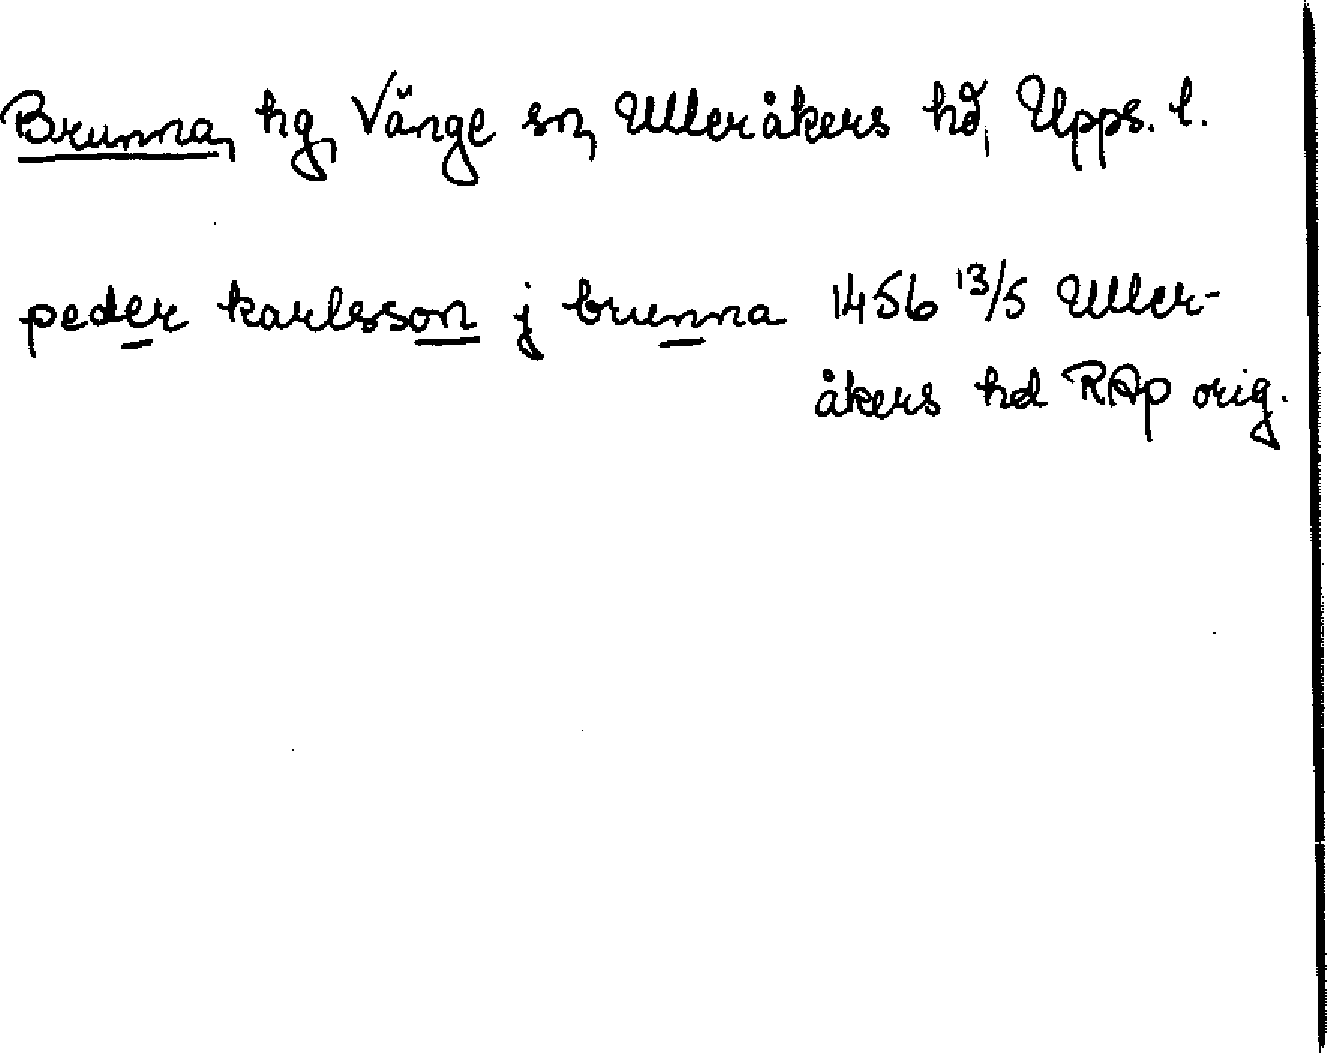 Brunna, hg, Vänge sn, Ulleråkers hd, Upps. l.
peder karlsson j brunna 1456 13/5 Uller-
åkers hd RAp orig.